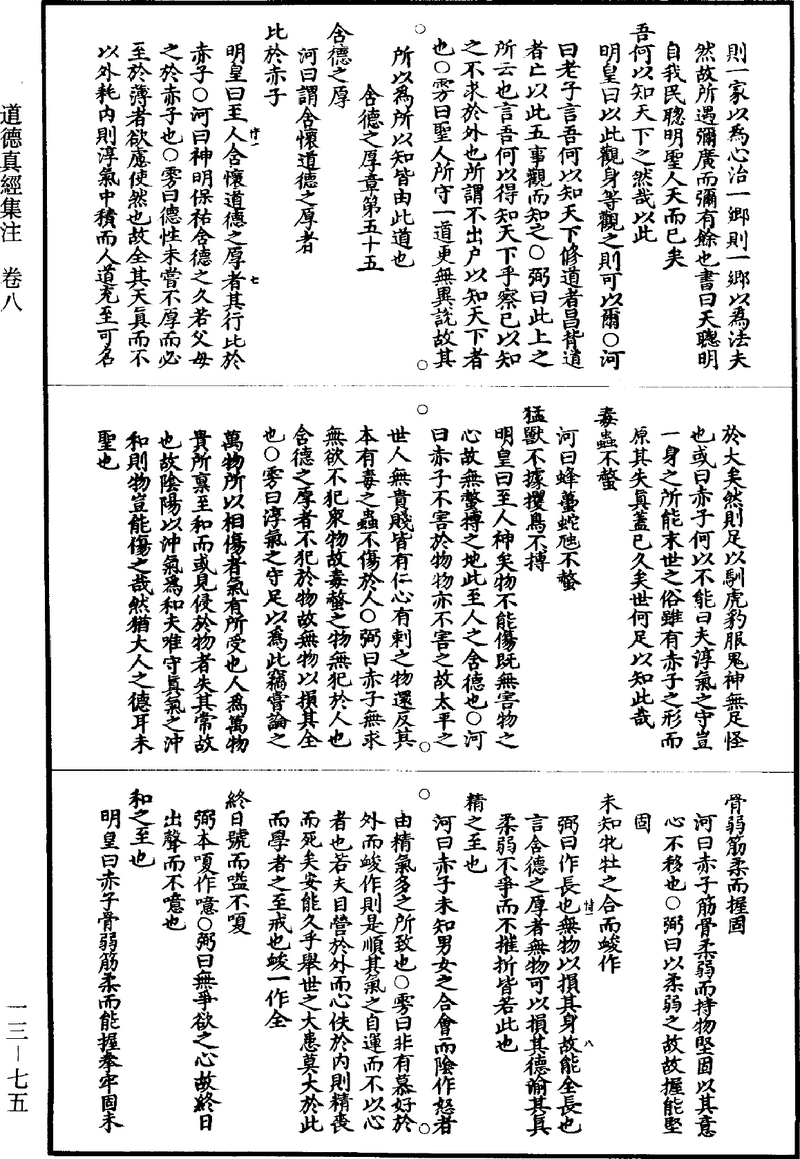 道德真經集注　卷八
一三－七五
則一家以為心治一鄉則一鄉以為法夫
然故所遇彌廣而彌有餘也書曰天聰明
自我民聰明聖人天而已矣
吾何以知天下之然哉以此
明皇曰以此觀身等觀之則可以爾○河
曰老子言吾何以知天下修道者昌背道
者亡以此五事觀而知之○弼曰此上之
所云也言吾何以得知天下乎察己以知
之不求於外也所謂不出户以知天下者
也○雱曰聖人所守一道更無異說故其
所以為所以知皆由此道也
含德之厚章第五十五
含德之厚
河曰謂含懷道德之厚者
比於赤子
明皇曰至人含懷道德之厚者其行比於
赤子○河曰神明保祐含德之久若父母
之於赤子也○雱曰德性未嘗不厚而必
至於薄者欲慮使然也故全其天真而不
以外耗内則淳氣中積而人道充至可名
於大矣然則足以馴虎豹服鬼神無足怪
也或曰赤子何以不能曰夫淳氣之守豈
一身之所能末世之俗雖有赤子之形而
原其失真蓋已久矣世何足以知此哉
毒蟲不螫
河曰蜂蠆蛇虺不螫
猛獸不據攫鳥不搏
明皇曰至人神矣物不能傷既無害物之
心故無螫搏之地此至人之含德也○河
曰赤子不害於物物亦不害之故太平之
世人無貴賤皆有仁心有刺之物還反其
本有毒之蟲不傷於人○弼曰赤子無求
無欲不犯衆物故毒螫之物無犯於人也
含德之厚者不犯於物故無物以損其全
也○雱曰淳氣之守足以為此竊嘗論之
萬物所以相傷者氣有所受也人為萬物
貴所禀至和而或見侵於物者失其常故
也故陰陽以沖氣為和夫唯守真氣之沖
和則物豈能傷之哉然猶大人之德耳未
聖也
骨弱筋柔而握固
河曰赤子筋骨柔弱而持物堅固以其意
心不移也○弼曰以柔弱之故故握能堅
固
未知牝牡之合而峻作
弼曰作長也無物以損其身故能全長也
言含德之厚者無物可以損其德渝其真
柔弱不爭而不摧折皆若此也
精之至也
河曰赤子未知男女之合會而陰作怒者
由精氣多之所致也○雱曰非有慕好於
外而峻作則是順其氣之自運而不以心
者也若夫目營於外而心佚於内則精喪
而死矣安能久乎舉世之大患莫大於此
而學者之至戒也峻一作全
終日號而嗌不嗄
弼本嗄作噫○弼曰無爭欲之心故終日
出聲而不噫也
和之至也
明皇曰赤子骨弱筋柔而能握拳牢固未